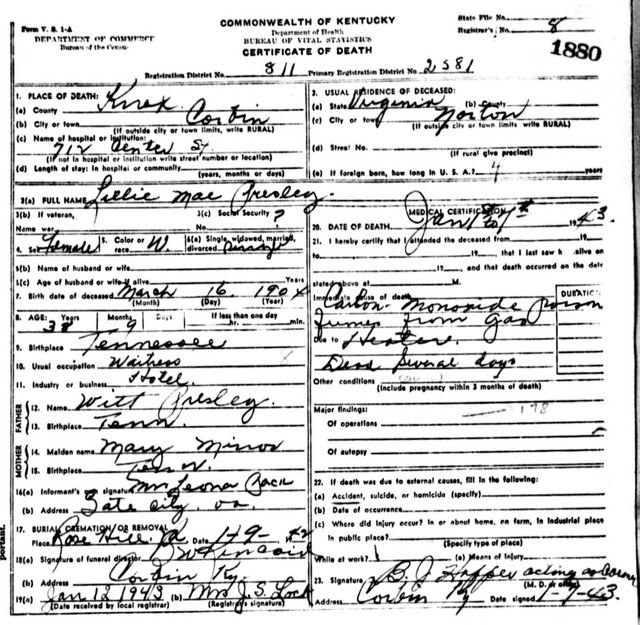 Form V. S. 1-A
DEPARTMENT OF COMMERCE
Bureau of the Census
COMMONWEALTH OF KENTUCKY
Department of Health
BUREAU OF VITAL STATISTICS
CERTIFICATE OF DEATH
State File No.
Registrar's No. 8
1880
Registration District No. 811 Primary Registration District No. 2581
1. PLACE OF DEATH:
(a) County Knox
(b) City or town Corbin
(If outside city or town limits, write RURAL)
(c) Name of hospital or institution:
712 Center St.
(If not in hospital or institution write street number or location)
(d) Length of stay: In hospital or community
(years, months or days)
2. USUAL RESIDENCE OF DECEASED:
(a) State Virginia (b) County
(c) City or town Norton
(If outside city or town limits, write RURAL)
(d) Street No.
(If rural give precinct)
(e) If foreign born, how long in U. S. A.? years
3(a) FULL NAME Lillie Mae Presley
3(b) If veteran,
Name war
3(c) Social Security ?
No.
4. Sex Female 5. Color or race W. 6(a) Single, widowed, married, divorced Single
6(b) Name of husband or wife
6(c) Age of husband or wife if alive Years
7. Birth date of deceased March 16 1904
(Month) (Day) (Year)
8. AGE: Years Months Days If less than one day
38 9 hr. min.
9. Birthplace Tennessee
10. Usual occupation Waitress
11. Industry or business Hotel
FATHER
12. Name Witt Presley
13. Birthplace Tenn
MOTHER
14. Maiden name Mary Minor
15. Birthplace Tenn.
16(a) Informant's own signature Mrs Leona
(b) Address Gate City, Va.
17. BURIAL, CREMATION OR REMOVAL
Place Rose Hill 1-9-
18(a) Signature of funeral director
(b) Address Corbin Ky.
19(a) Jan 12 1943 (b) Mrs J. S. Lock
(Date received by local registrar) (Registrar's signature)
MEDICAL CERTIFICATION
20. DATE OF DEATH Jan 1943.
21. I hereby certify that I attended the deceased from 19
to 19, that I last saw h alive on
19, and that death occurred on the date
stated above at M.
DURATION
Immediate cause of death
Carbon Monoxide Poison
fumes from Gas
Due to Heater.
Dead Several days
Other conditions
(Include pregnancy within 3 months of death)
Major findings: 178
Of operations
Of autopsy
22. If death was due to external causes, fill in the following:
(a) Accident, suicide, or homicide (specify)
(b) Date of occurrence
(c) Where did injury occur? In or about home, on farm, in industrial place
in public place?
(Specify type of place)
While at work? (e) Means of Injury
23. Signature B. J. Hopper acting as Coroner
(M. D. or other)
Address Corbin Ky Date signed 1-9-43.
portant.